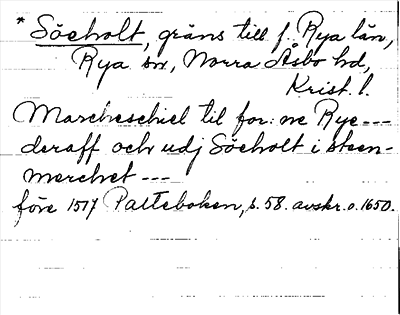 * Söeholt, gräns till f. Rya län,
Rya sn, Norra Åsbo hd,
Krist. l.
Marcheschiel til for: ne Rye ---
deraff och udj Söeholt i steen-
merchet ---
före 1517 Palteboken, s. 58. avskr. o. 1650.